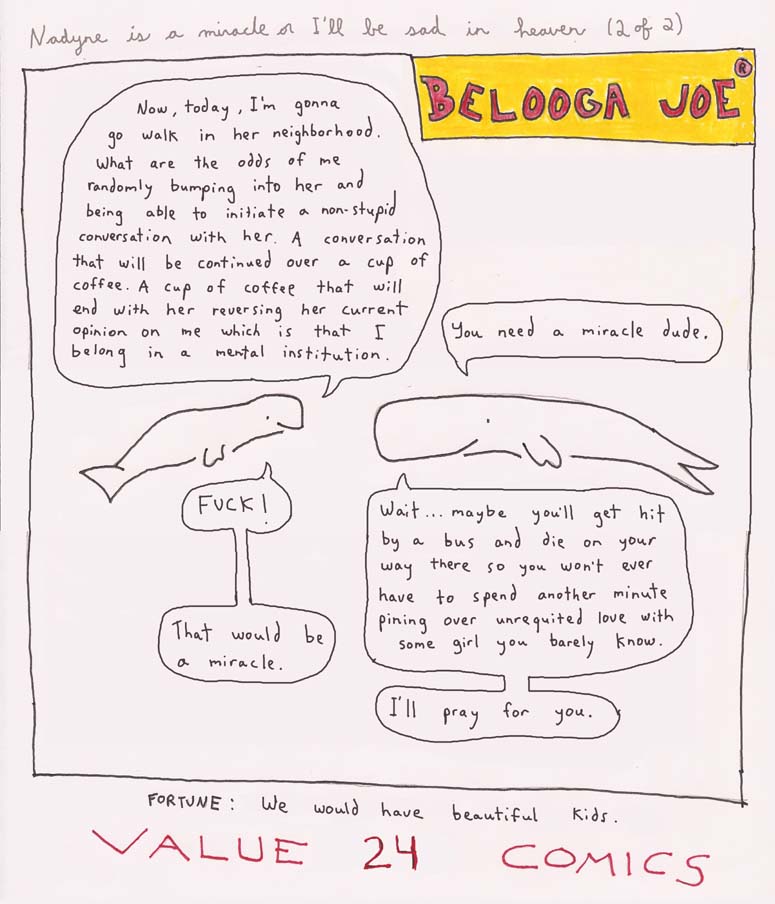 Nadyne is a miracle or I'll be sad in heaven (2 of 2)
BELOOGA JOE®
Now, today, I'm gonna
go walk in her neighborhood.
What are the odds of me
randomly bumping into her and
being able to initiate a non-stupid
conversation with her. A conversation
that will be continued over a cup of
coffee. A cup of coffee that will
end with her reversing her current
opinion on me which is that I
belong in a mental institution.
You need a miracle dude.
FUCK!
That would be
a miracle.
Wait... maybe you'll get hit
by a bus and die on your
way there so you won't ever
have to spend another minute
pining over unrequited love with
some girl you barely know.
I'll pray for you.
FORTUNE: We would have beautiful kids.
VALUE 24 COMICS